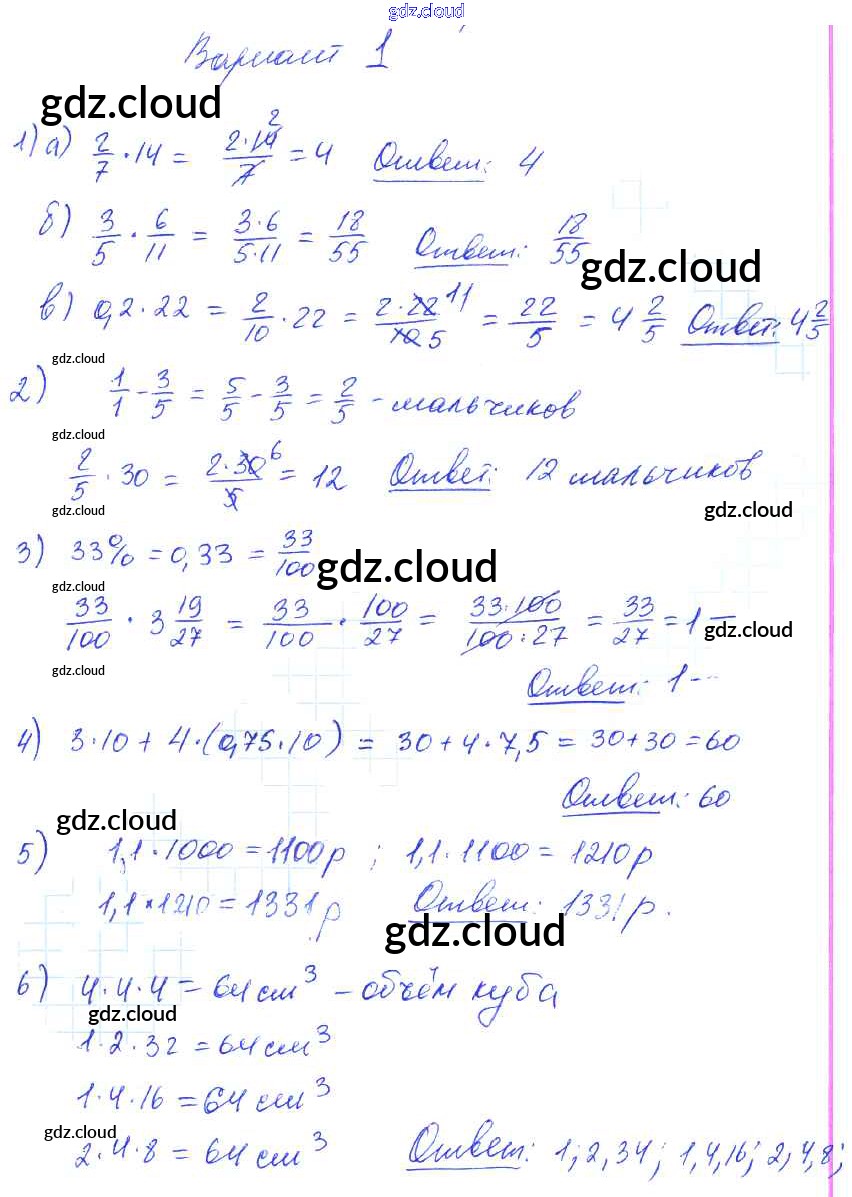 gdz.cloud
Вариант 1
gdz.cloud
1) а) 2/7 · 14 = 2·14/7 2 = 4 Ответ: 4
б) 3/5 · 6/11 = 3·6/5·11 = 18/55 Ответ: 18/55
gdz.cloud
в) 0,2·22 = 2/10 · 22 = 2·22/10 11 5 = 22/5 = 4 2/5 Ответ: 4 2/5
gdz.cloud
2) 1/1 - 3/5 = 5/5 - 3/5 = 2/5 - мальчиков
gdz.cloud
2/5 · 30 = 2·30/5 6 = 12 Ответ: 12 мальчиков
gdz.cloud gdz.cloud
3) 33% = 0,33 = 33/100
gdz.cloud
gdz.cloud
33/100 · 3 19/27 = 33/100 · 100/27 = 33·100/100:27 = 33/27 = 1 —
gdz.cloud
gdz.cloud
Ответ: 1 --
4) 3·10 + 4·(0,75·10) = 30 + 4·7,5 = 30+30 = 60
Ответ: 60
gdz.cloud
5) 1,1·1000 = 1100р ; 1,1·1100 = 1210р
1,1·1210 = 1331р Ответ: 1331р.
gdz.cloud
6) 4·4·4 = 64 см³ - объём куба
gdz.cloud
1·2·32 = 64 см³
1·4·16 = 64 см³
gdz.cloud
2·4·8 = 64 см³ Ответ: 1;2,34; 1,4,16; 2,4,8;